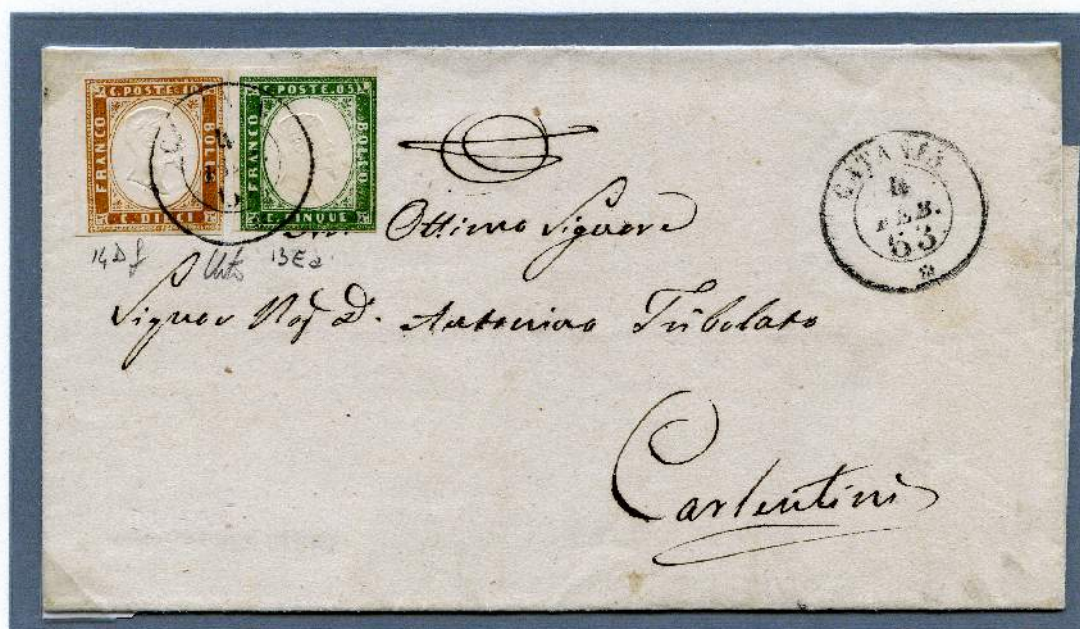 C. POSTE. 10
FRANCO
BOLLO
C. DIECI
C. POSTE. 05
FRANCO
BOLLO
C. CINQUE
CATANIA
4
FEB.
63
14Df
13Ea
Ottimo Signore
Signor D. Antonino Tribolato
Carlentini